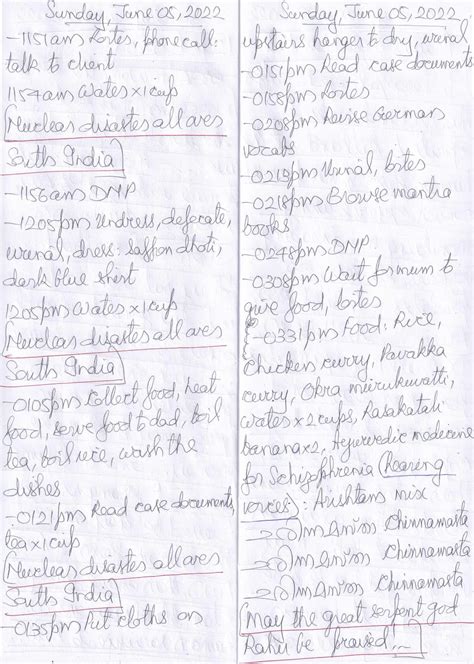 Sunday, June 05, 2022
-1151am Lortes, phone call:
talk to client
1154am Water x1 cup
(Nuclear disaster all over
South India)
-1156am DNP
-1205pm Undress, defecate,
urinal, dress: saffron dhoti,
dark blue shirt
1205pm Water x1 cup
(Nuclear disaster all over
South India)
-0105pm Collect food, heat
food, serve food to dad, boil
tea, boil rice, wash the
dishes
-0121pm Read case documents,
tea x1 cup
(Nuclear disaster all over
South India)
-0135pm Put cloths on
Sunday, June 05, 2022
upstairs hanger to dry, urinal
-0151pm Read case documents
-0158pm Lortes
-0208pm Revise German
vocabs
-0212pm Urinal, lortes
-0218pm Browse mantra
books
-0248pm DNP
-0308pm Wait for mum to
give food, lortes
-0331pm Food: Rice,
Chicken curry, Pavakka
curry, Okra
water x2 cups, Rasakatali
banana x2, Ayurvedic medecine
for Schizophrenia (Hearing
voices): Arishtam mix
Chinnamasta
Chinnamasta
Chinnamasta
(May the great serpent god
Rahu be praised...)